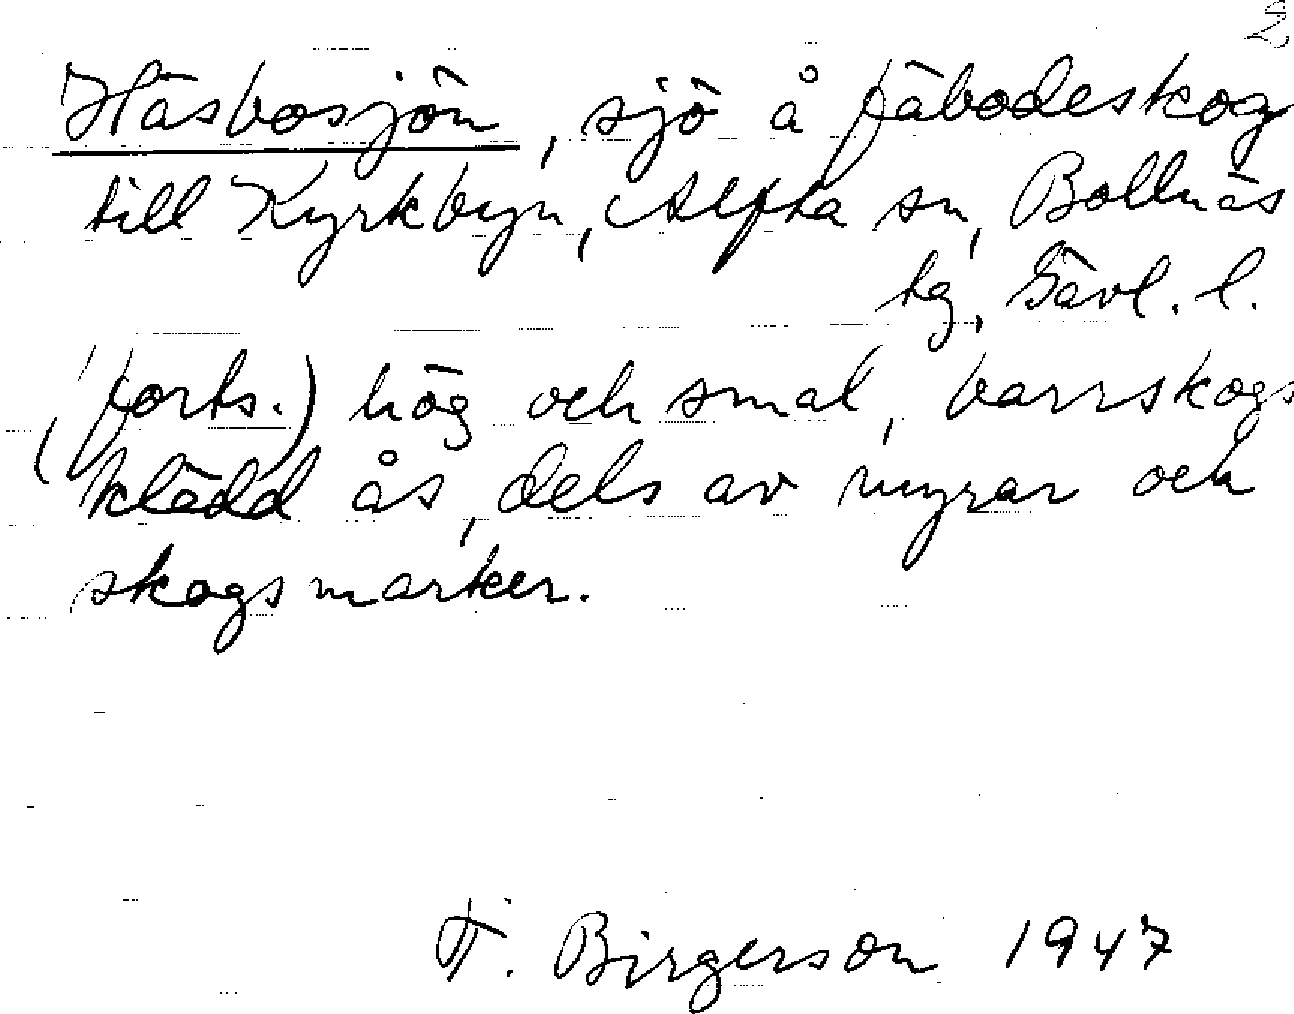 2
Häsbosjön, sjö å fäbodeskog
till Kyrkbyn, Alfta sn, Bollnäs
tg, Gävl. l.
(forts.) hög och smal, barrskogs
klädd ås, dels av myrar och
skogsmarker.
F. Birgerson 1947